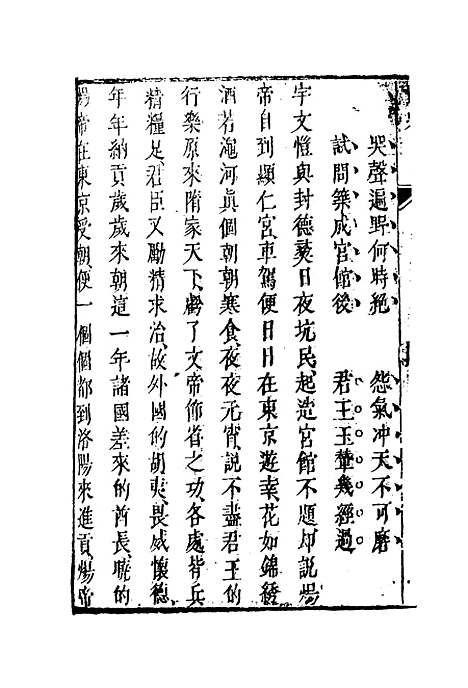 哭聲遍野何時絕　怨氣冲天不可磨
試問築成宮館後　君王玉輦幾經過
宇文愷與封德彛日夜坑民起造宮館不題却說煬
帝自到顯仁宮車駕便日日在東京遊幸花如錦綉
酒若澠河眞個朝朝寒食夜夜元宵說不盡君王的
行樂原來隋家天下虧了文帝節省之功各處皆兵
精糧足君臣又勵精求治故外國的胡夷畏威懷德
年年納貢歲歲來朝這一年諸國差來的酋長曉的
煬帝在東京受朝便一個個都到洛陽來進貢煬帝